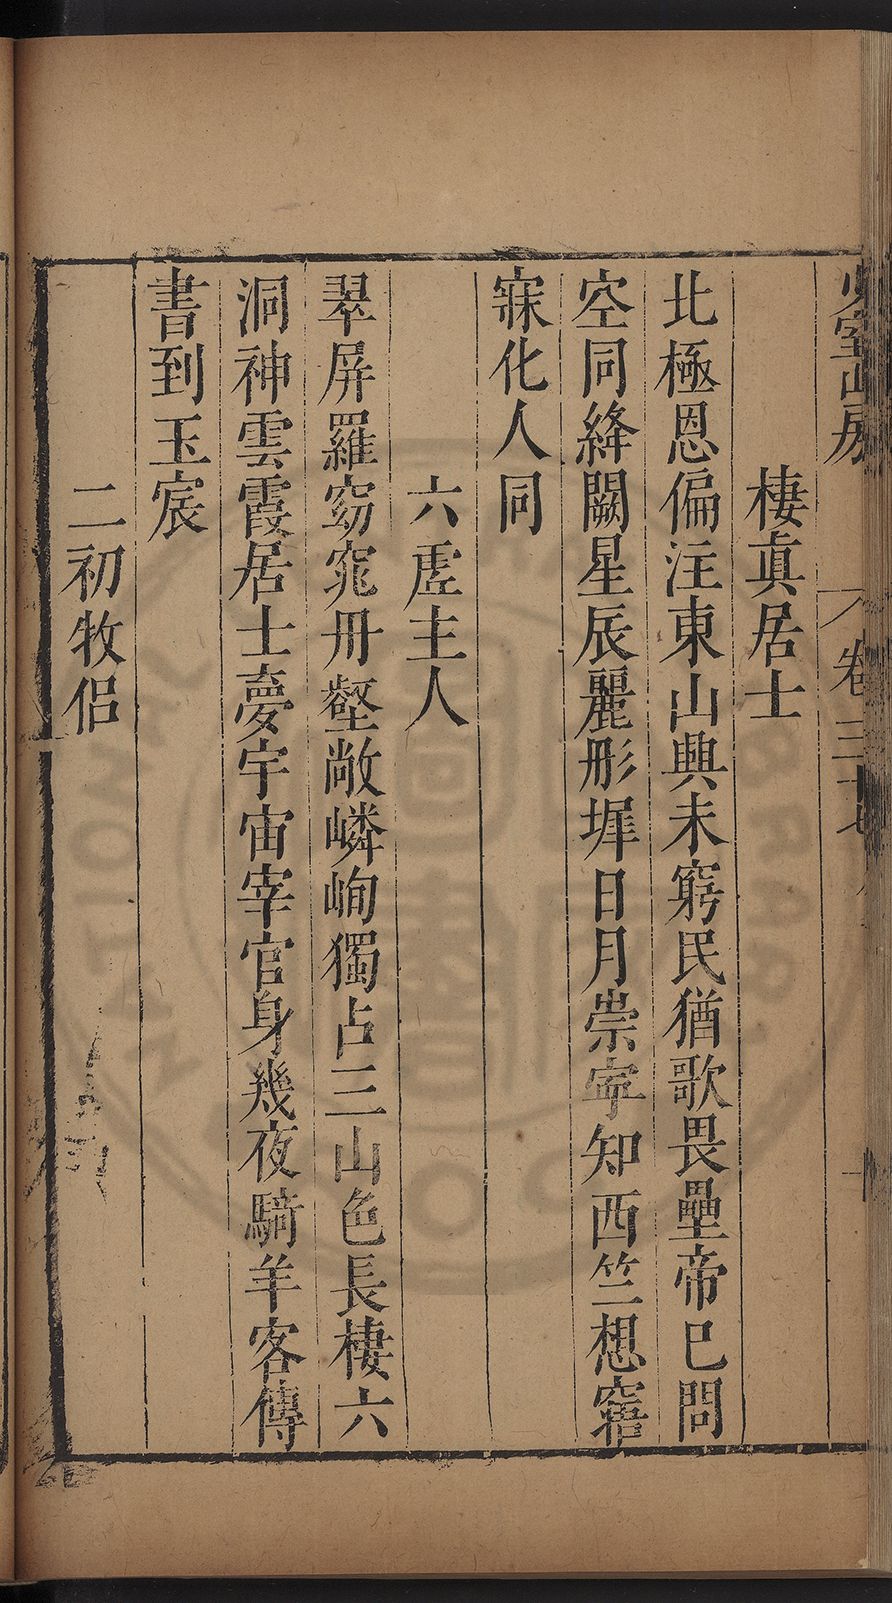 棲真居士
北極恩偏注東山興未窮民猶歌畏壘帝巳問
空同絳闕星辰麗彤墀日月崇寜知西竺想窹
寐化人同
六虗主人
翠屏羅窈窕冊壑敞嶙峋獨占三山色長棲六
洞神雲霞居士夢宇宙宰官身幾夜騎羊客傳
書到玉宸
二初牧侶